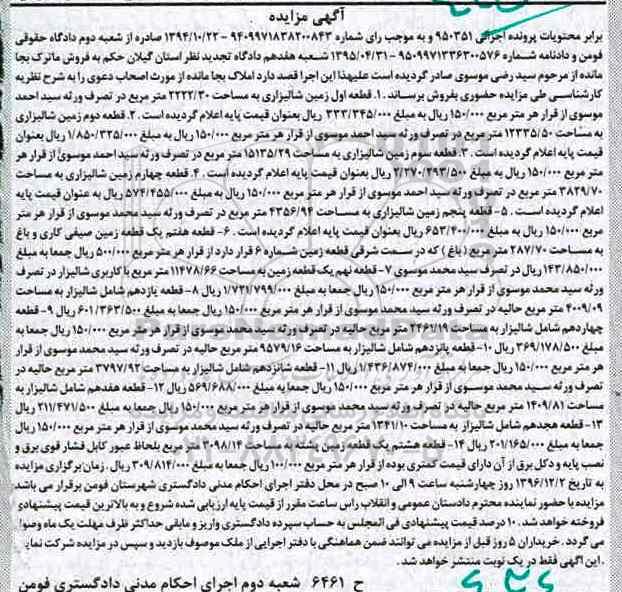 آگهی مزایده
برابر محتویات پرونده اجرائی ۹۵۰۳۵۱ و به موجب رای شماره ۹۴۰۹۹۷۱۸۳۸۲۰۰۸۴۳ - ۱۳۹۴/۱۰/۲۲ صادره از شعبه دوم دادگاه حقوقی
فومن و دادنامه شماره ۹۵۰۹۹۷۱۳۳۶۳۰۰۵۷۶ - ۱۳۹۵/۰۴/۳۱ شعبه هفدهم دادگاه تجدید نظر استان گیلان حکم به فروش ماترک بجا
مانده از مرحوم سید رضی موسوی صادر گردیده است علیهذا این اجرا قصد دارد املاک بجا مانده از مورث اصحاب دعوی را به شرح نظریه
کارشناسی طی مزایده حضوری بفروش برساند. ۱. قطعه اول زمین شالیزاری به مساحت ۲۲۲۲/۳۰ متر مربع در تصرف ورثه سید احمد
موسوی از قرار هر متر مربع ۱۵۰/۰۰۰ ریال به مبلغ ۳۳۳/۳۴۵/۰۰۰ ریال بعنوان قیمت پایه اعلام گردیده است. ۲. قطعه دوم زمین شالیزاری
به مساحت ۱۲۳۳۵/۵۰ متر مربع در تصرف ورثه سید احمد موسوی از قرار هر متر مربع ۱۵۰/۰۰۰ ریال به مبلغ ۱/۸۵۰/۳۲۵/۰۰۰ ریال بعنوان
قیمت پایه اعلام گردیده است. ۳. قطعه سوم زمین شالیزاری به مساحت ۱۵۱۳۵/۲۹ متر مربع در تصرف ورثه سید احمد موسوی از قرار هر
متر مربع ۱۵۰/۰۰۰ ریال به مبلغ ۲/۲۷۰/۲۹۳/۵۰۰ ریال بعنوان قیمت پایه اعلام گردیده است. ۴. قطعه چهارم زمین شالیزاری به مساحت
۳۸۲۹/۷۰ متر مربع در تصرف ورثه سید احمد موسوی از قرار هر متر مربع ۱۵۰/۰۰۰ ریال به مبلغ ۵۷۴/۴۵۵/۰۰۰ ریال به عنوان قیمت پایه
اعلام گردیده است. ۵- قطعه پنجم زمین شالیزاری به مساحت ۴۳۵۶/۹۴ متر مربع در تصرف ورثه سید محمد موسوی از قرار هر متر
مربع ۱۵۰/۰۰۰ ریال به مبلغ ۶۵۳/۴۰۰/۰۰۰ ریال بعنوان قیمت پایه اعلام گردیده است. ۶- قطعه هفتم یک قطعه زمین صیفی کاری و باغ
به مساحت ۲۸۷/۷۰ متر مربع ( باغ ) که در سمت شرقی قطعه زمین شماره ۶ قرار دارد از قرار هر متر مربع ۵۰۰/۰۰۰ ریال جمعا به مبلغ
۱۴۳/۸۵۰/۰۰۰ ریال در تصرف سید محمد موسوی ۷- قطعه نهم یک قطعه زمین به مساحت ۱۱۴۷۸/۶۶ متر مربع با کاربری شالیزار در تصرف
ورثه سید محمد موسوی از قرار هر متر مربع ۱۵۰/۰۰۰ ریال جمعا به مبلغ ۱/۷۲۱/۷۹۹/۰۰۰ ریال ۸- قطعه یازدهم شامل شالیزار به مساحت
۴۰۰۹/۰۹ متر مربع حالیه در تصرف ورثه سید محمد موسوی از قرار هر متر مربع ۱۵۰/۰۰۰ ریال جمعا به مبلغ ۶۰۱/۳۶۳/۵۰۰ ریال ۹- قطعه
چهاردهم شامل شالیزار به مساحت ۲۴۶۱/۱۹ متر مربع حالیه در تصرف ورثه سید محمد موسوی از قرار هر متر مربع ۱۵۰/۰۰۰ ریال جمعا به
مبلغ ۳۶۹/۱۷۸/۵۰۰ ریال ۱۰- قطعه پانزدهم شامل شالیزار به مساحت ۹۵۷۹/۱۶ متر مربع حالیه در تصرف ورثه سید محمد موسوی از قرار
هر متر مربع ۱۵۰/۰۰۰ ریال جمعا به مبلغ ۱/۴۳۶/۸۷۴/۰۰۰ ریال ۱۱- قطعه شانزدهم شامل شالیزار به مساحت ۳۷۹۷/۹۲ متر مربع حالیه در
تصرف ورثه سید محمد موسوی از قرار هر متر مربع ۱۵۰/۰۰۰ ریال جمعا به مبلغ ۵۶۹/۶۸۸/۰۰۰ ریال ۱۲- قطعه هفدهم شامل شالیزار به
مساحت ۱۴۰۹/۸۱ متر مربع حالیه در تصرف ورثه سید محمد موسوی از قرار هر متر مربع ۱۵۰/۰۰۰ ریال جمعا به مبلغ ۲۱۱/۴۷۱/۵۰۰ ریال
۱۳- قطعه هجدهم شامل شالیزار به مساحت ۱۳۴۱/۱۰ متر مربع حالیه در تصرف ورثه سید محمد موسوی از قرار هر متر مربع ۱۵۰/۰۰۰ ریال
جمعا به مبلغ ۲۰۱/۱۶۵/۰۰۰ ریال ۱۴- قطعه هشتم یک قطعه زمین پشته به مساحت ۳۰۹۸/۱۴ متر مربع بلحاظ عبور کابل فشار قوی برق و
نصب پایه و دکل برق از آن دارای قیمت کمتری بوده از قرار هر متر مربع ۱۰۰/۰۰۰ ریال جمعا به مبلغ ۳۰۹/۸۱۴/۰۰۰ ریال. زمان برگزاری مزایده
به تاریخ ۱۳۹۶/۱۲/۲ روز چهارشنبه ساعت ۹ الی ۱۰ صبح در محل دفتر اجرای احکام مدنی دادگستری شهرستان فومن برقرار می باشد
مزایده با حضور نماینده محترم دادستان عمومی و انقلاب راس ساعت مقرر از قیمت پایه ارزیابی شده شروع و به بالاترین قیمت پیشنهادی
فروخته خواهد شد. ۱۰ درصد قیمت پیشنهادی فی المجلس به حساب سپرده دادگستری واریز و مابقی حداکثر ظرف مهلت یک ماه وصول
می گردد. خریداران ۵ روز قبل از مزایده می توانند ضمن هماهنگی با دفتر اجرایی از ملک موصوف بازدید و سپس در مزایده شرکت نمایند
. این آگهی فقط در یک نوبت منتشر خواهد شد.
ح ۶۴۶۱ شعبه دوم اجرای احکام مدنی دادگستری فومن